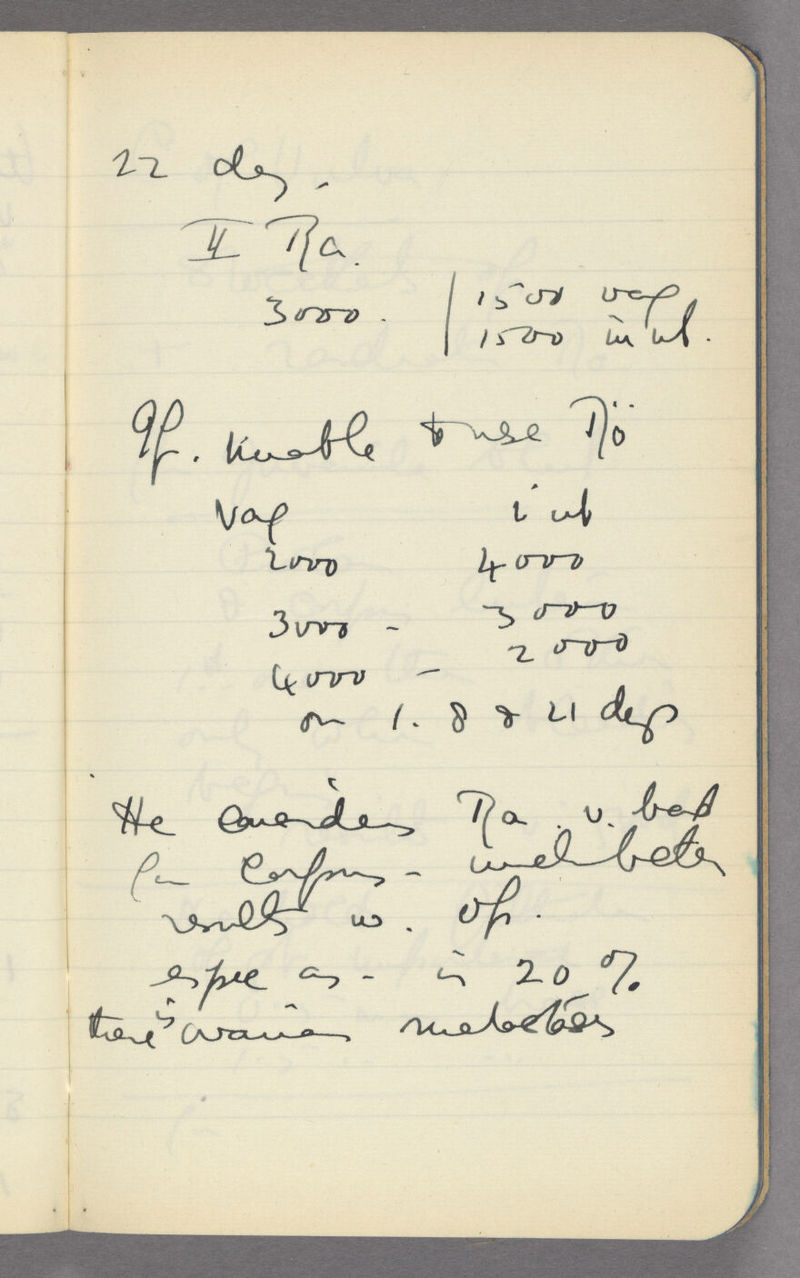 22 day.
II Ra.
3000. | 1500 vag
1500 in ut.
If. unable to use Rö
Vag i ut
2000 4000
3000 - 3000
4000 - 2000
on 1. 8 & 21 days
He considers Ra. v. bad
for Corpus - much better
results w. Op.
espec as - in 20 %
there is ovarian metastases